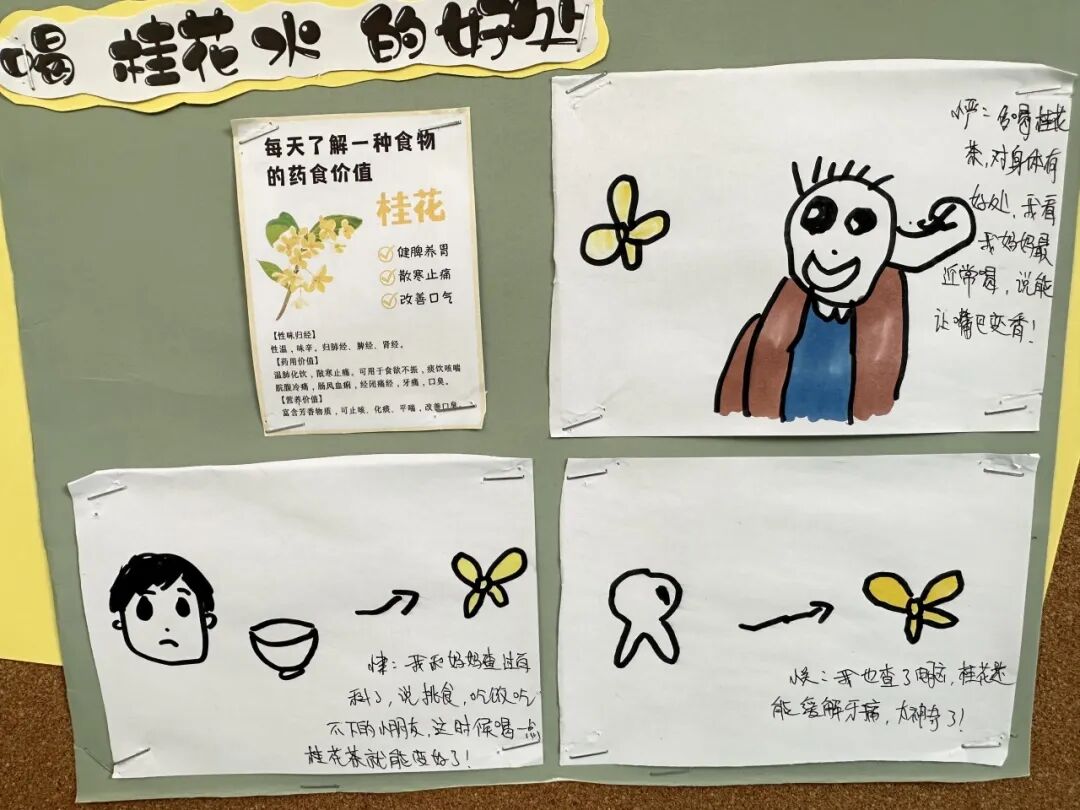 喝桂花水的好处
每天了解一种食物
的药食价值
桂花
健脾养胃
散寒止痛
改善口气
【性味归经】
性温，味辛。归肺经、脾经、肾经。
【药用价值】
温肺化饮，散寒止痛。可用于食欲不振，痰饮咳喘
脘腹冷痛，肠风血痢，经闭痛经，牙痛，口臭。
【营养价值】
富含芳香物质，可止咳、化痰、平喘，改善口臭
严：喝桂花
茶，对身体有
好处，我看
我妈妈最
近常喝，说能
让嘴巴变香！
津：我和妈妈查过百
科了，说挑食，吃饭吃
不下的小朋友，这时候喝一点
桂花茶就能变好了！
我也查了电脑，桂花
能缓解牙痛，太神奇了！